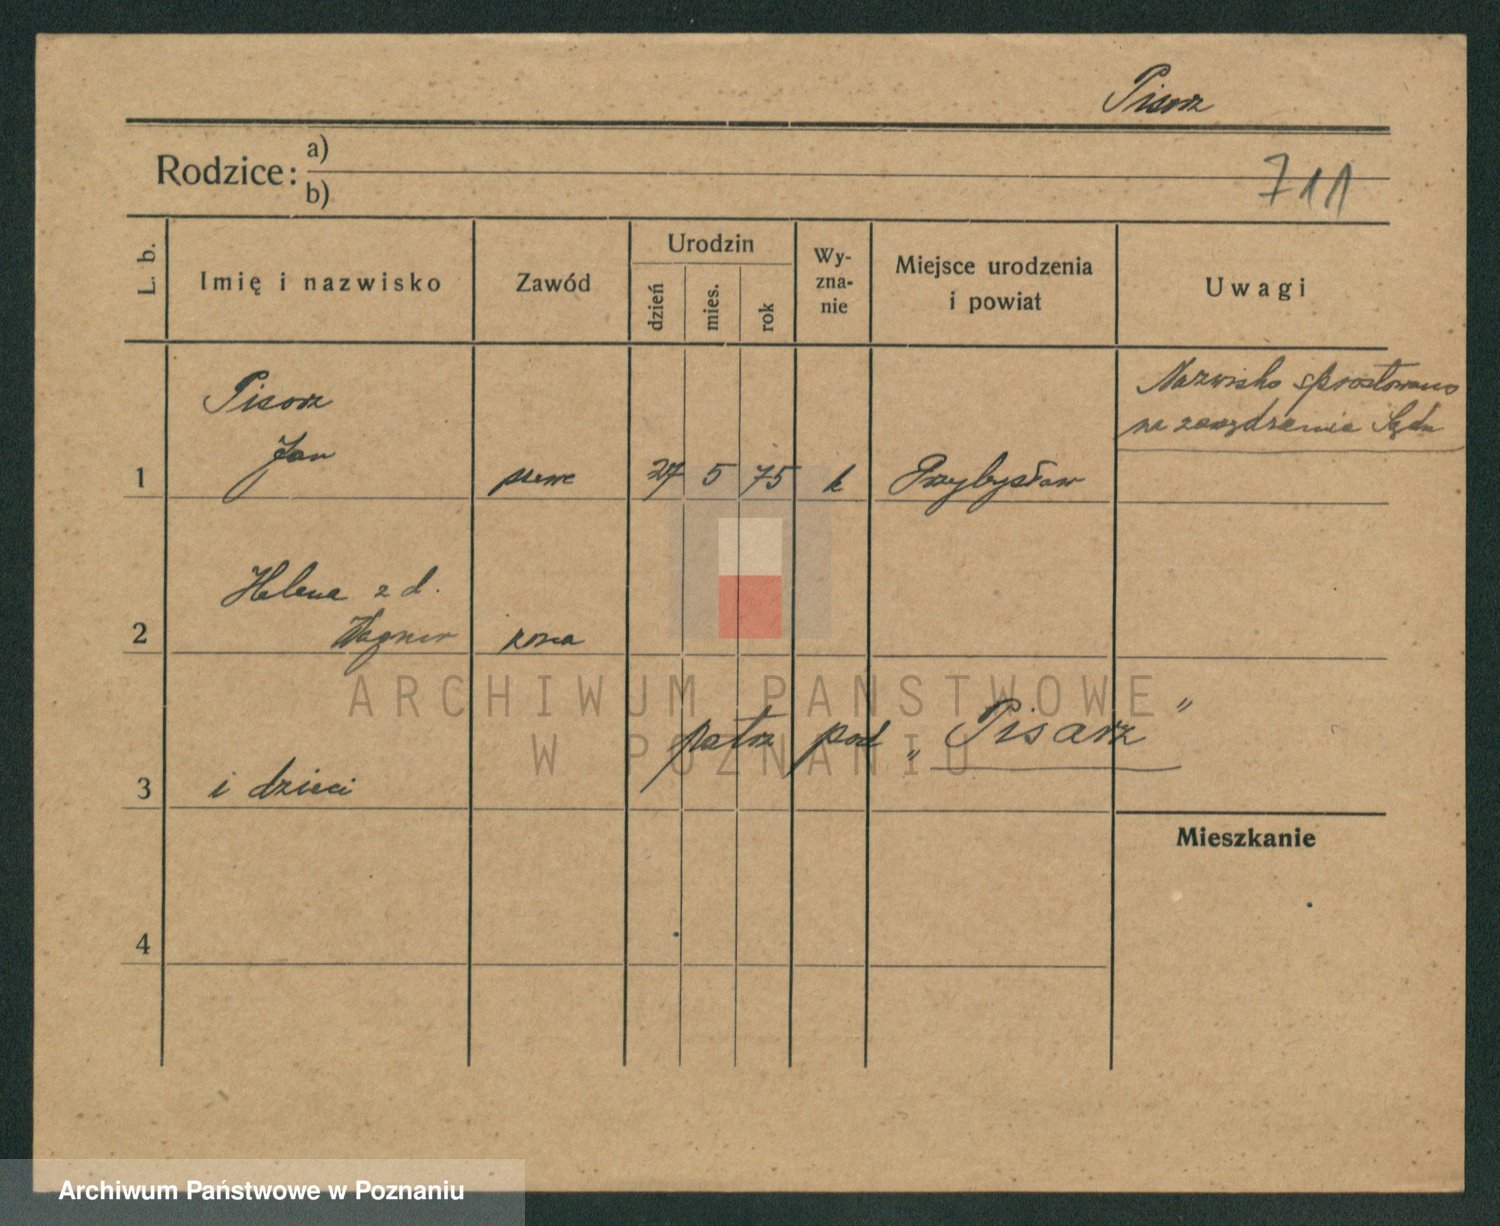 Pisorz
Rodzice: a)
b)
711
L. b.
Imię i nazwisko
Zawód
Urodzin
dzień
mies.
rok
Wy-
zna-
nie
Miejsce urodzenia
i powiat
Uwagi
Pisorz
Nazwisko sprostowano
na zarządzenie Sądu
1 Jan szewc 27 5 75 k Przybysław
Helena z d.
2 Wagner żona
ARCHIWUM PAŃSTWOWE
W POZNANIU
patrz pod „Pisarz"
3 i dzieci
Mieszkanie
4
Archiwum Państwowe w Poznaniu